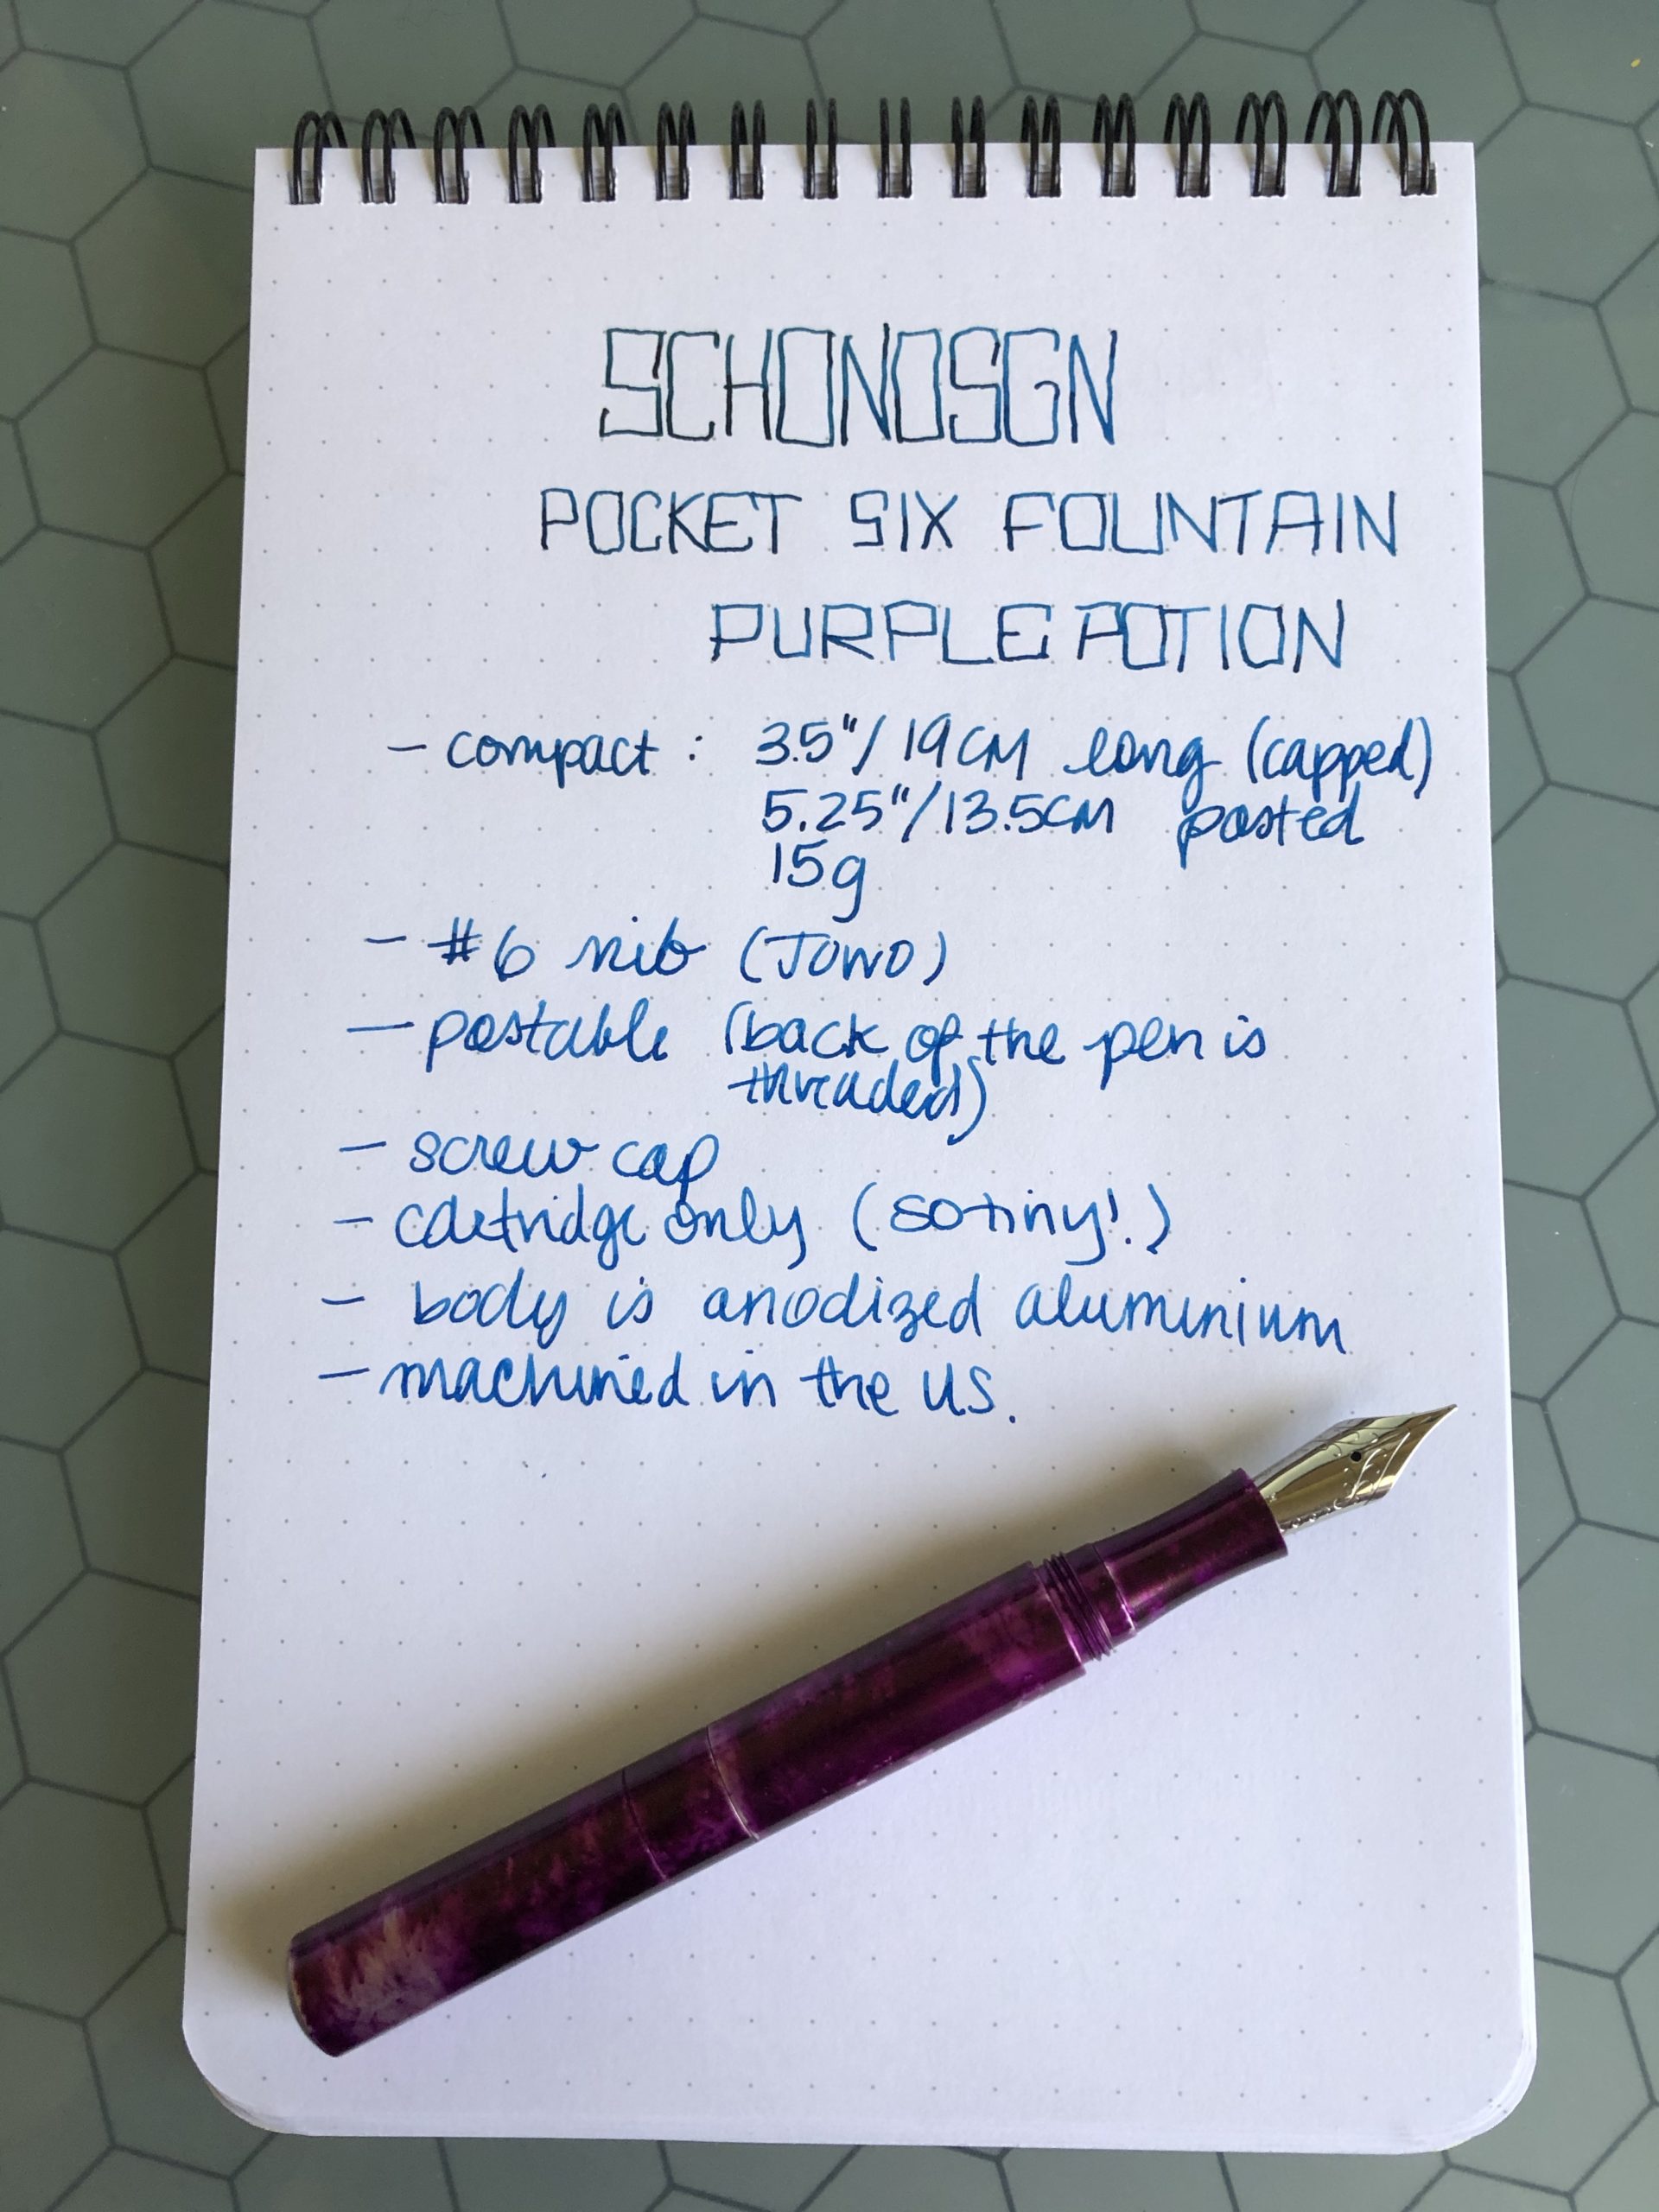 SCHONDSGN
POCKET SIX FOUNTAIN
PURPLE POTION
- compact : 3.5"/19CM long (capped)
5.25"/13.5CM posted
15g
- #6 nib (JOWO)
- postable (back of the pen is
threaded)
- screw cap
- cartridge only (so tiny!)
- body is anodized aluminium
- machined in the US.